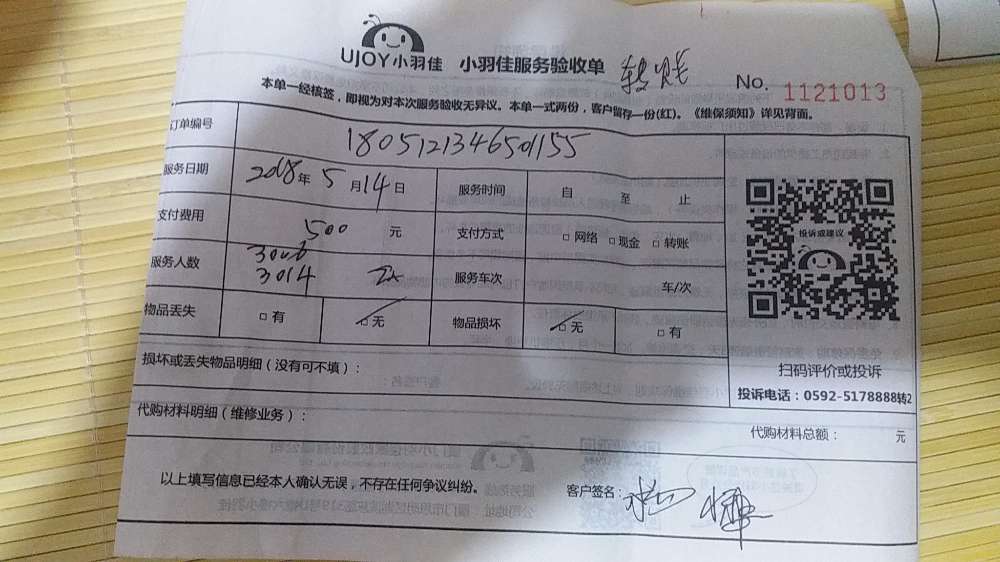 UJOY小羽佳 小羽佳服务验收单 转账 No. 1121013
本单一经核签，即视为对本次服务验收无异议。本单一式两份，客户留存一份(红)。《维保须知》详见背面。
订单编号 1805121346501155
服务日期 2018年5月14日 服务时间 自 至 止
支付费用 500 元 支付方式 □ 网络 □ 现金 □ 转账
投诉或建议
服务人数 3006
3014 2人 服务车次 车/次
物品丢失 □ 有 □ 无 物品损坏 □ 无 □ 有
损坏或丢失物品明细（没有可不填）：
扫码评价或投诉
投诉电话：0592-5178888转2
代购材料明细（维修业务）：
代购材料总额： 元
以上填写信息已经本人确认无误，不存在任何争议纠纷。 客户签名：